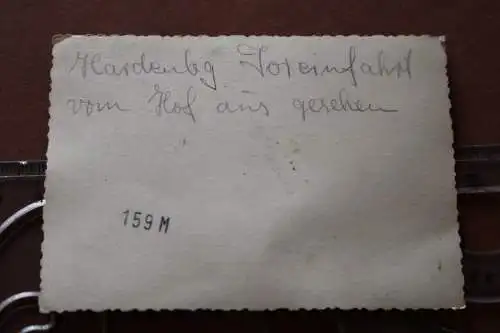 Hardenbg Toreinfahrt
vom Hof aus gesehen
159 M